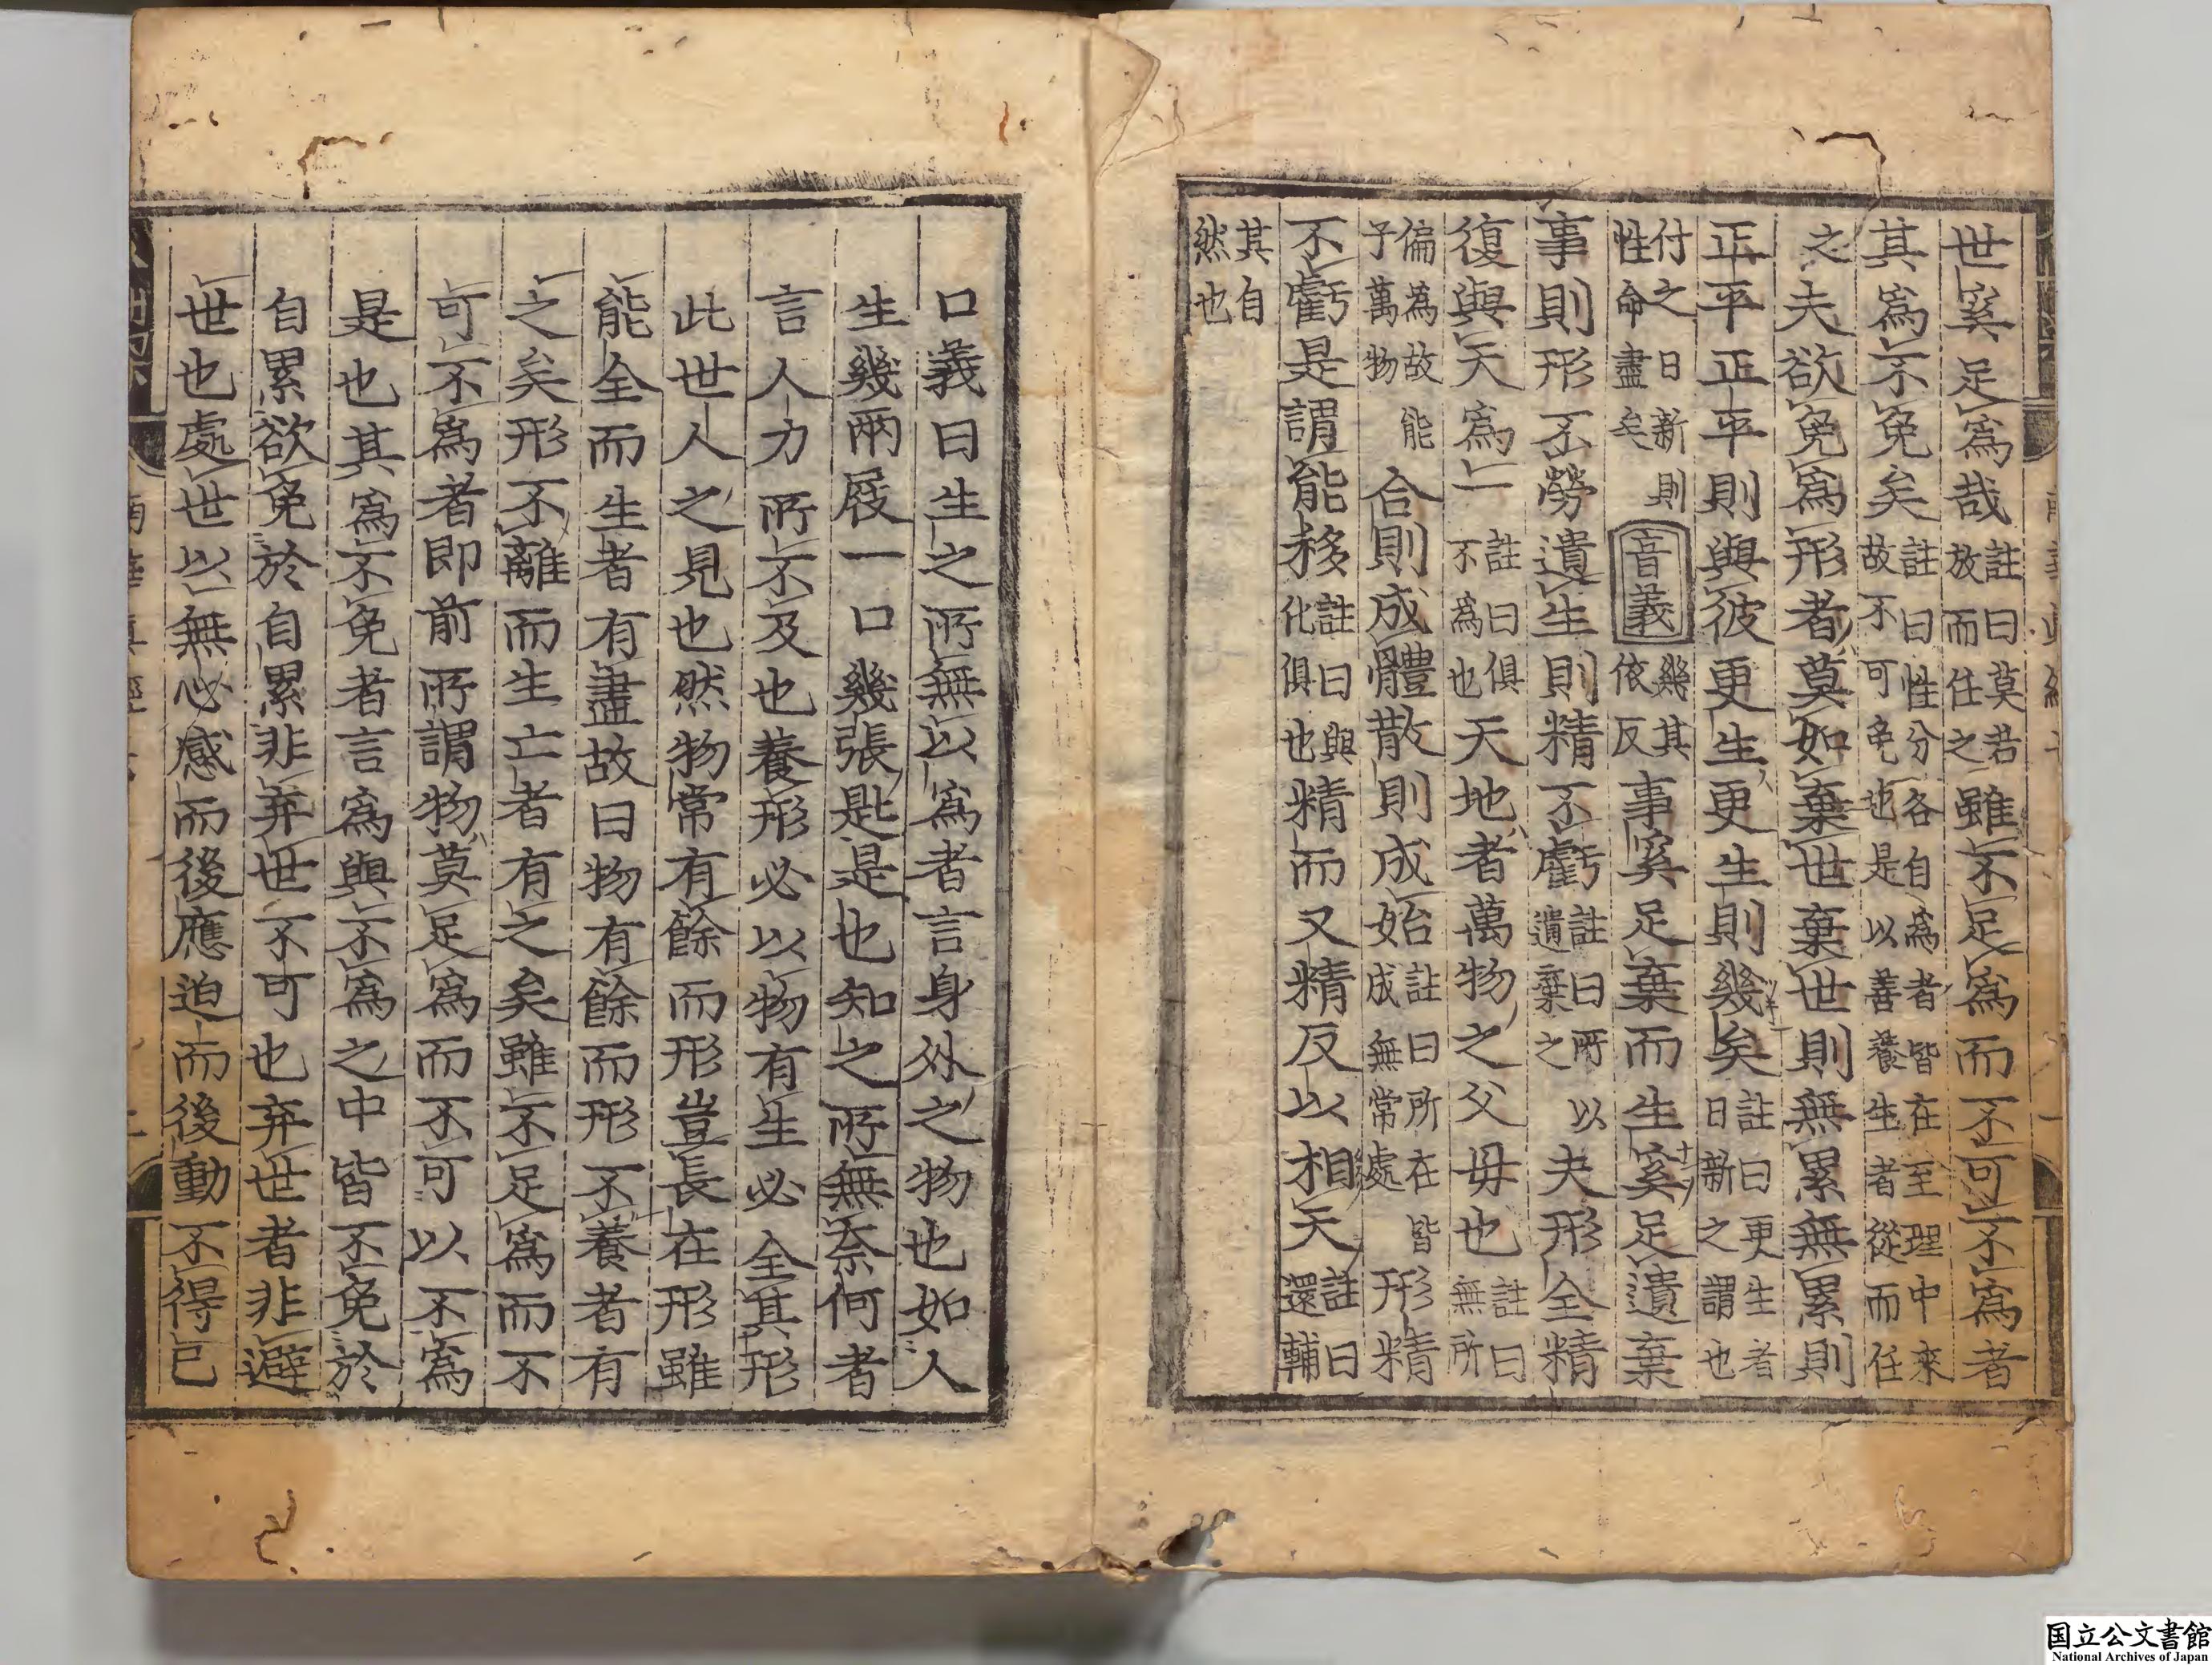 世奚足爲哉註曰莫若放而任之雖不足爲而不可不爲者
其爲不免矣註曰性分各自爲者皆在至理中來故不可免也是以善養生者從而任
之夫欲免爲形者莫如棄世棄世則無累無累則
正平正平則與彼更生更生則幾矣註曰更生者日新之謂也
付之日新則性命盡矣音義幾其依反事奚足棄而生奚足遺棄
事則形不勞遺生則精不虧註曰所以遺棄之夫形全精
復與天爲一註曰俱不為也天地者萬物之父母也註曰無所
偏為故能子萬物合則成體散則成始註曰所在皆成無常處形精
不虧是謂能移註曰與化俱也精而又精反以相天註曰還輔
其自然也
口義曰生之所無以爲者言身外之物也如人
生幾兩屐一口幾張匙是也知之所無柰何者
言人力所不及也養形必以物有生必全其形
此世人之見也然物常有餘而形豈長在形雖
能全而生者有盡故曰物有餘而形不養者有
之矣形不離而生亡者有之矣雖不足爲而不
可不爲者即前所謂物莫足爲而不可以不爲
是也其爲不免者言爲與不爲之中皆不免於
自累欲免於自累非弃世不可也弃世者非避
世也處世以無心感而後應迫而後動不得已
国立公文書館
National Archives of Japan